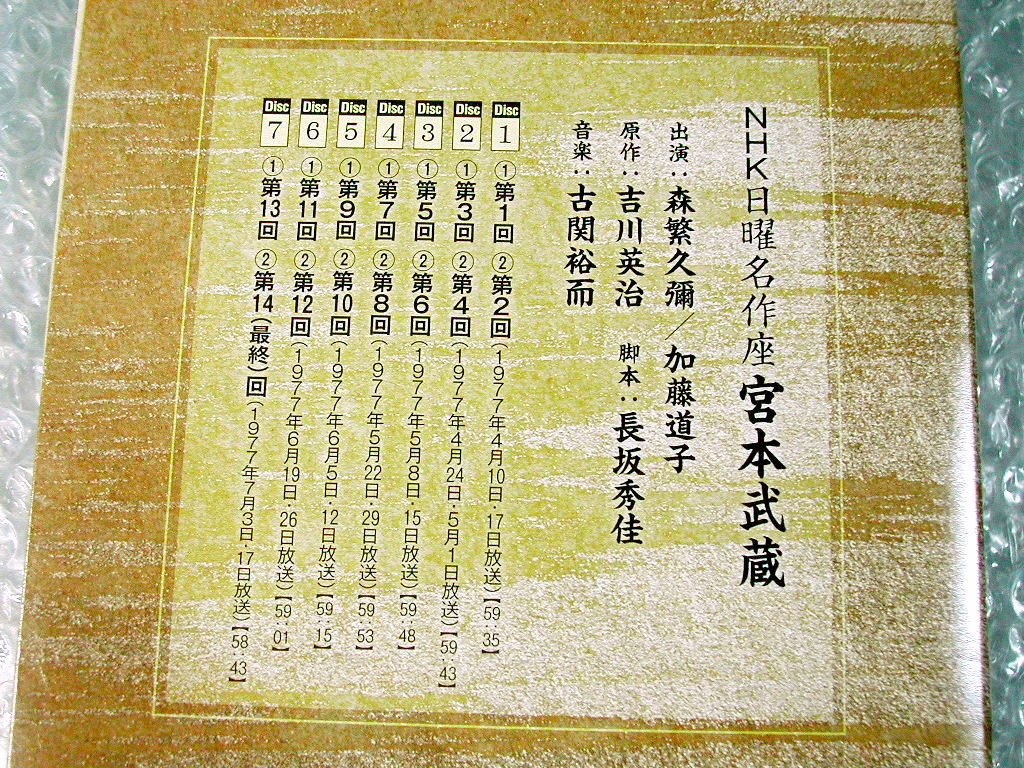 NHK日曜名作座 宮本武蔵
出演：森繁久彌／加藤道子
原作：吉川英治 脚本：長坂秀佳
音楽：古関裕而
Disc 1 ①第1回 ②第2回（1977年4月10日・17日放送）【59：35】
Disc 2 ①第3回 ②第4回（1977年4月24日・5月1日放送）【59：43】
Disc 3 ①第5回 ②第6回（1977年5月8日・15日放送）【59：48】
Disc 4 ①第7回 ②第8回（1977年5月22日・29日放送）【59：53】
Disc 5 ①第9回 ②第10回（1977年6月5日・12日放送）【59：15】
Disc 6 ①第11回 ②第12回（1977年6月19日・26日放送）【59：01】
Disc 7 ①第13回 ②第14（最終）回（1977年7月3日・17日放送）【58：43】